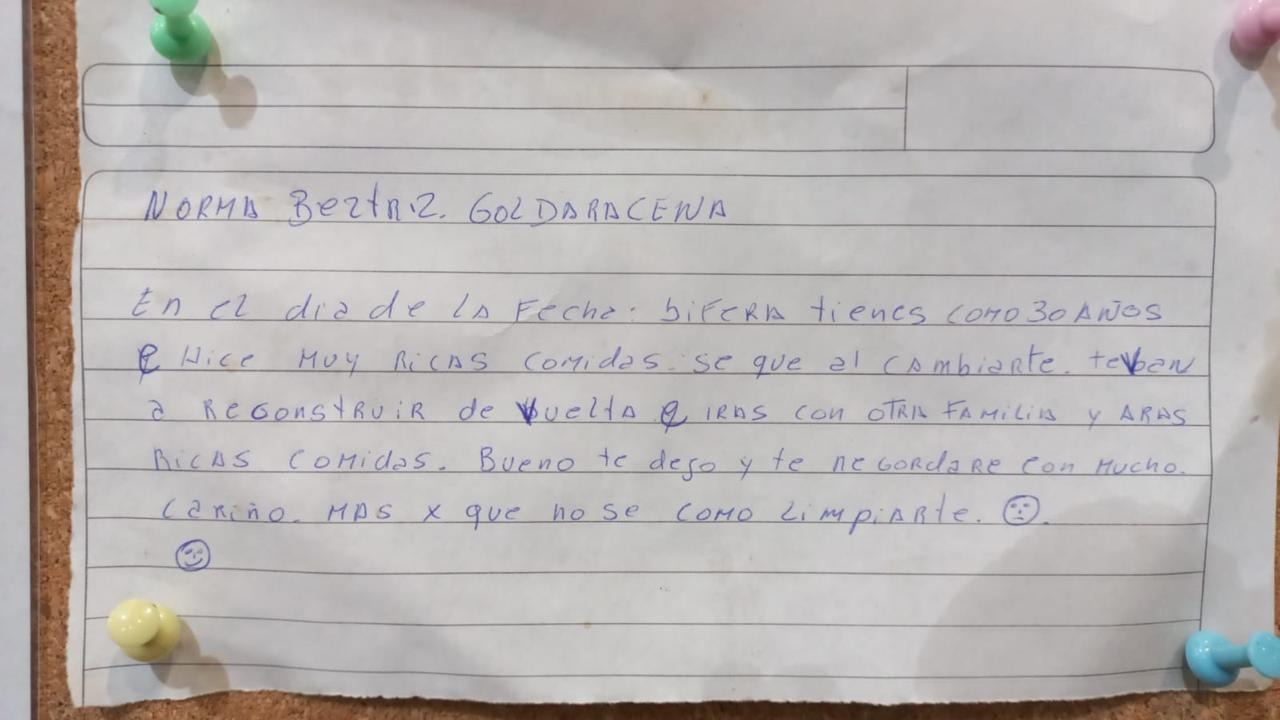 NORMA BeatRiz. GOLDARACENA
En el dia de la Fecha: biFERA tienes COMO 30 AÑOS
e Hice MUY RiCAS COMidas. se que al CAMbiarte. te van
a ReconstRuiR de vuelta e IRAS CON OTRA FAMiLiA y ARAS
RiCAS COMidas. Bueno te dejo y te Recordare con Mucho.
Cariño. MAS x que no se COMO LimpiARte. 😐.
🙂